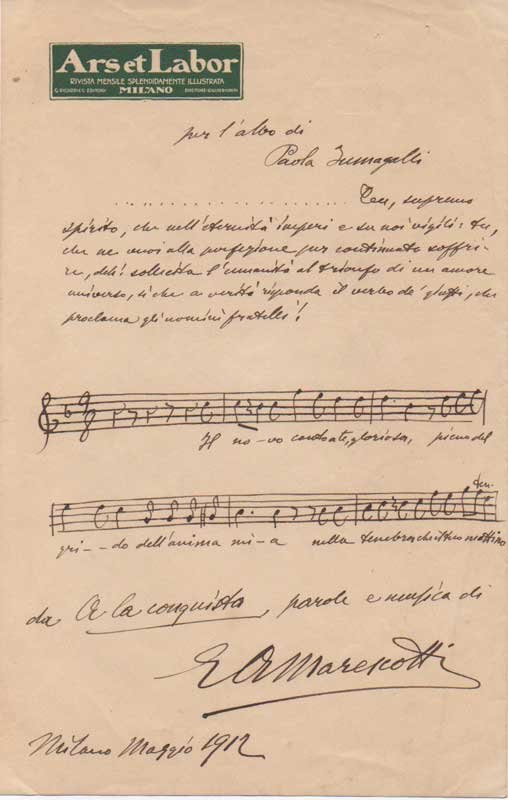 Ars et Labor
RIVISTA MENSILE SPLENDIDAMENTE ILLUSTRATA
G. RICORDI E C. EDITORI MILANO
per l'albo di
Paola Fumagalli
. . . . . . . . . . . . . . . . . . . . . . Tu, supremo
spirito, che nell'eternità imperi e su noi vigili: tu,
che ne vuoi alla perfezione pur continuato soffri-
re, deh! sollecita l'umanità al trionfo di un amore
universo, sì che a verità risponda il verbo de' giusti, che
proclama gli uomini fratelli!
Il no-vo combatte, gloriosa, pieno del
ten.
gri--do dell'anima mi-a nella tenebra
da A la conquista, parole e musica di
E A Marescotti
Milano Maggio 1912